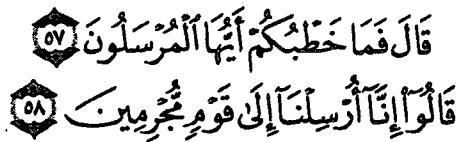 قَالَ فَمَا خَطْبُكُمْ أَيُّهَا ٱلْمُرْسَلُونَ ٥٧
قَالُوٓا۟ إِنَّآ أُرْسِلْنَآ إِلَىٰ قَوْمٍ مُّجْرِمِينَ ٥٨